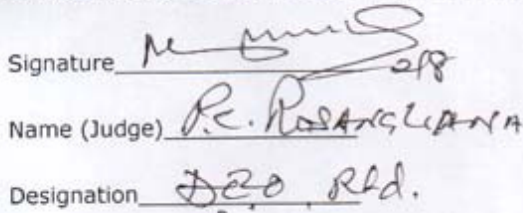 Signature
Name (Judge) P.C. ROSANGLIANA
Designation DEO Rtd.